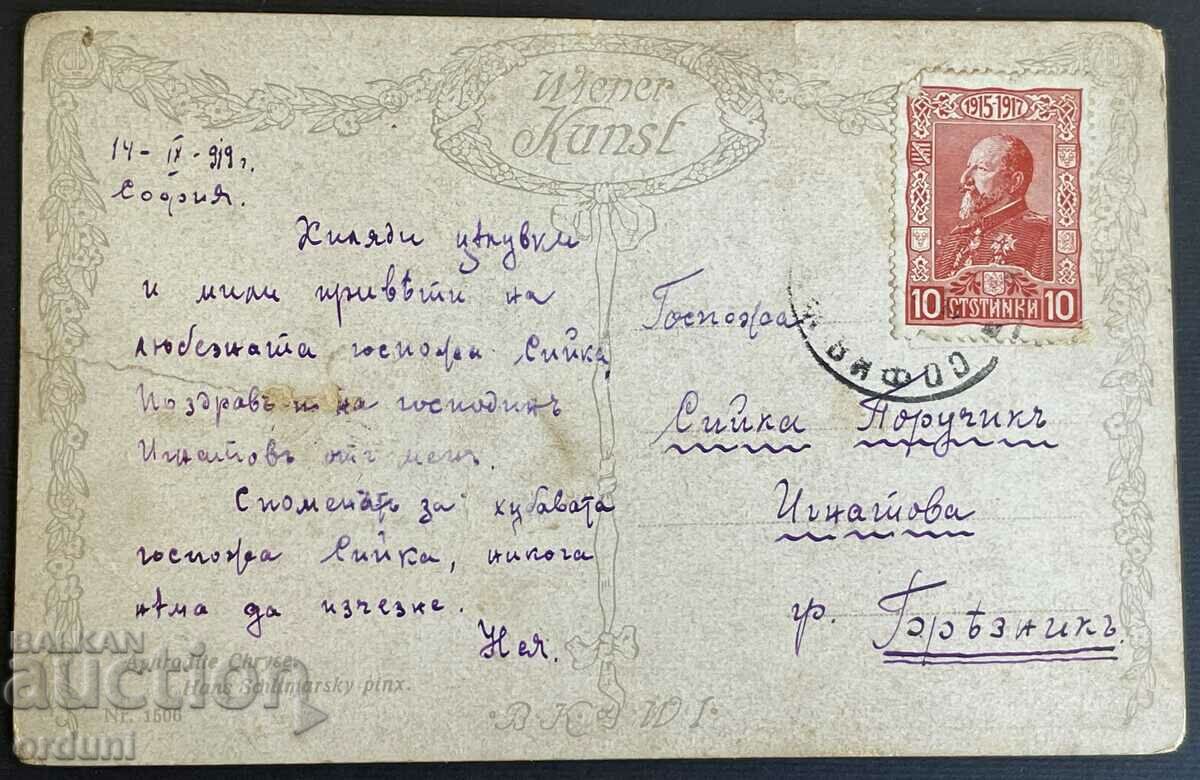 Wiener
Kunst
14 - IX - 919 г.
София.
Хиляди цѣлувки
и мили привѣти на
любезната госпожа Сийка
Поздравъ и на господинъ
Игнатовъ отъ мене.
Споменътъ за хубавата
госпожа Сийка, никога
нѣма да изчезне.
Нея.
1915-1917
10 СТОТИНКИ 10
СОФИЯ
Госпожа
Сийка Поручикъ
Игнатова
гр. Брѣзникъ.
Aphrodite Chryse.
Hans Schlimarsky pinx.
Nr. 1506
B.K.W.I.
BALKAN
auction
orduni